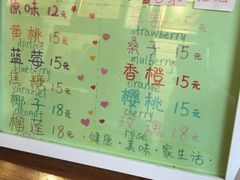 原味 12元
strawberry
黄桃 15元
桑子 15元
mulberry
蓝莓 15元
blueberry
香橙 15元
orange
焦糖 15元
caramel
樱桃 15元
cherry
椰子 18元
coconut
玫瑰 18元
rose
榴莲 18元
durian
健康·美味·家生活·